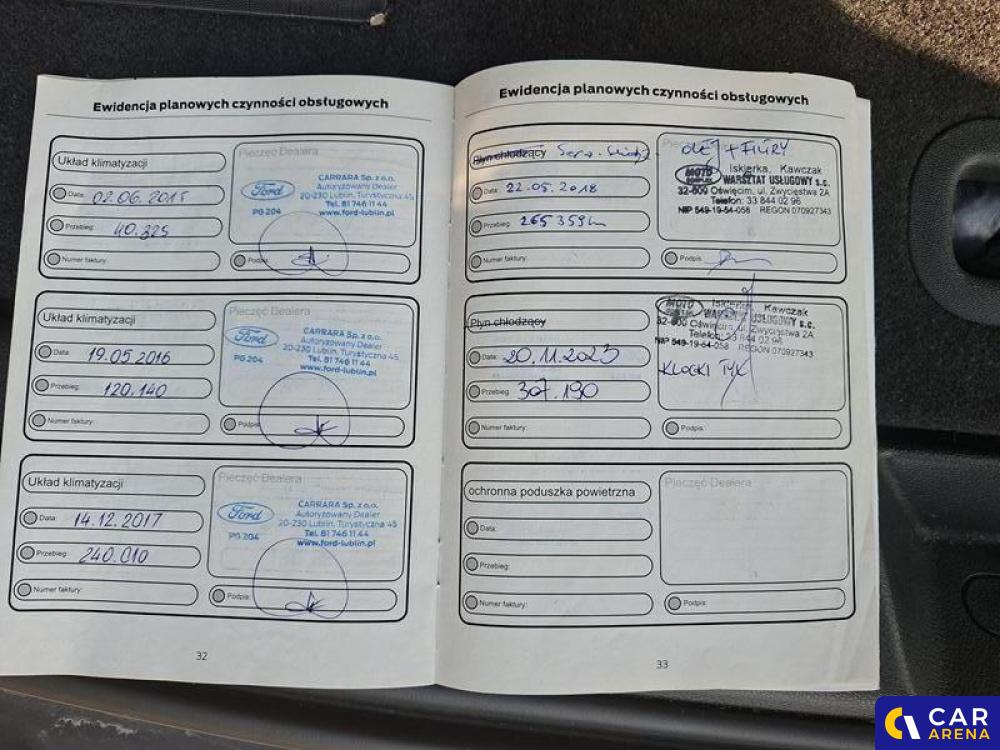 Ewidencja planowych czynności obsługowych
Układ klimatyzacji
Data: 02.06.2015
Przebieg: 40.325
Numer faktury:
Pieczęć Dealera
Ford
PG 204
CARRARA Sp. z o.o.
Autoryzowany Dealer
20-230 Lublin, Turystyczna 45
Tel. 81 746 11 44
www.ford-lublin.pl
Podpis:
Układ klimatyzacji
Data: 19.05.2016
Przebieg: 120.140
Numer faktury:
Pieczęć Dealera
Ford
PG 204
CARRARA Sp. z o.o.
Autoryzowany Dealer
20-230 Lublin, Turystyczna 45
Tel. 81 746 11 44
www.ford-lublin.pl
Podpis:
Układ klimatyzacji
Data: 14.12.2017
Przebieg: 240.010
Numer faktury:
Pieczęć Dealera
Ford
PG 204
CARRARA Sp. z o.o.
Autoryzowany Dealer
20-230 Lublin, Turystyczna 45
Tel. 81 746 11 44
www.ford-lublin.pl
Podpis:
32
Ewidencja planowych czynności obsługowych
Płyn chłodzący
Data: 22.05.2018
Przebieg: 265 359km
Numer faktury:
OLEJ + FILTRY
MOTO
Iskierka, Kawczak
WARSZTAT USŁUGOWY s.c.
32-600 Oświęcim, ul. Zwycięstwa 2A
Telefon: 33 844 02 96
NIP 549-19-54-058 REGON 070927343
Podpis:
Płyn chłodzący
Data: 20.11.2023
Przebieg: 307.190
Numer faktury:
MOTO
Iskierka, Kawczak
WARSZTAT USŁUGOWY s.c.
32-600 Oświęcim, ul. Zwycięstwa 2A
Telefon: 33 844 02 96
NIP 549-19-54-058 REGON 070927343
KLOCKI TYŁ
Podpis:
ochronna poduszka powietrzna
Data:
Przebieg:
Numer faktury:
Pieczęć Dealera
Podpis:
33
CAR
ARENA